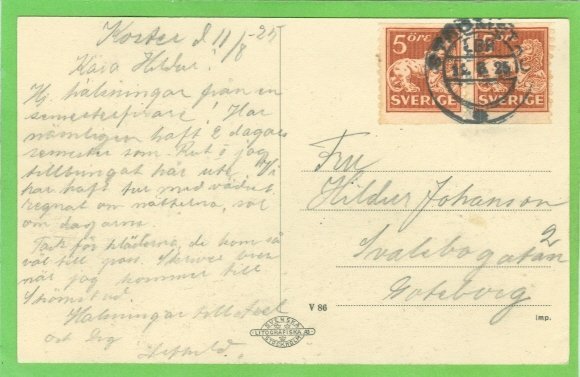 Koster d. 11/8 -25
Kära Hildur!
Hj. hälsningar från en
semesterfirare! Har
nämligen haft 2 dagars
semester som Rut o jag
tillbringat här ute. Vi
har haft tur med vädret
regnat om nätterna, sol
om dagarna.
Tack för kläderna, de kom så
väl till pass. Skriver
när jag kommer till
Strömstad.
Hälsningar till
Dig
5 ÖRE
SVERIGE
5 ÖRE
SVERIGE
STRÖMSTAD
LBR
12 8 25
Fru
Hildur Johanson
Svalebogatan 2
Göteborg
V 86
SVENSKA
LITOGRAFISKA AB
STOCKHOLM
imp.